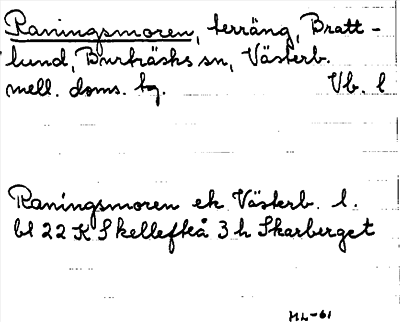 Raningsmoren, terräng, Bratt-
lund, Burträsks sn, Västerb.
mell. doms. tg. Vb. l
Raningsmoren ek Västerb. l.
bl 22 K Skellefteå 3 h Skarberget
HL-61